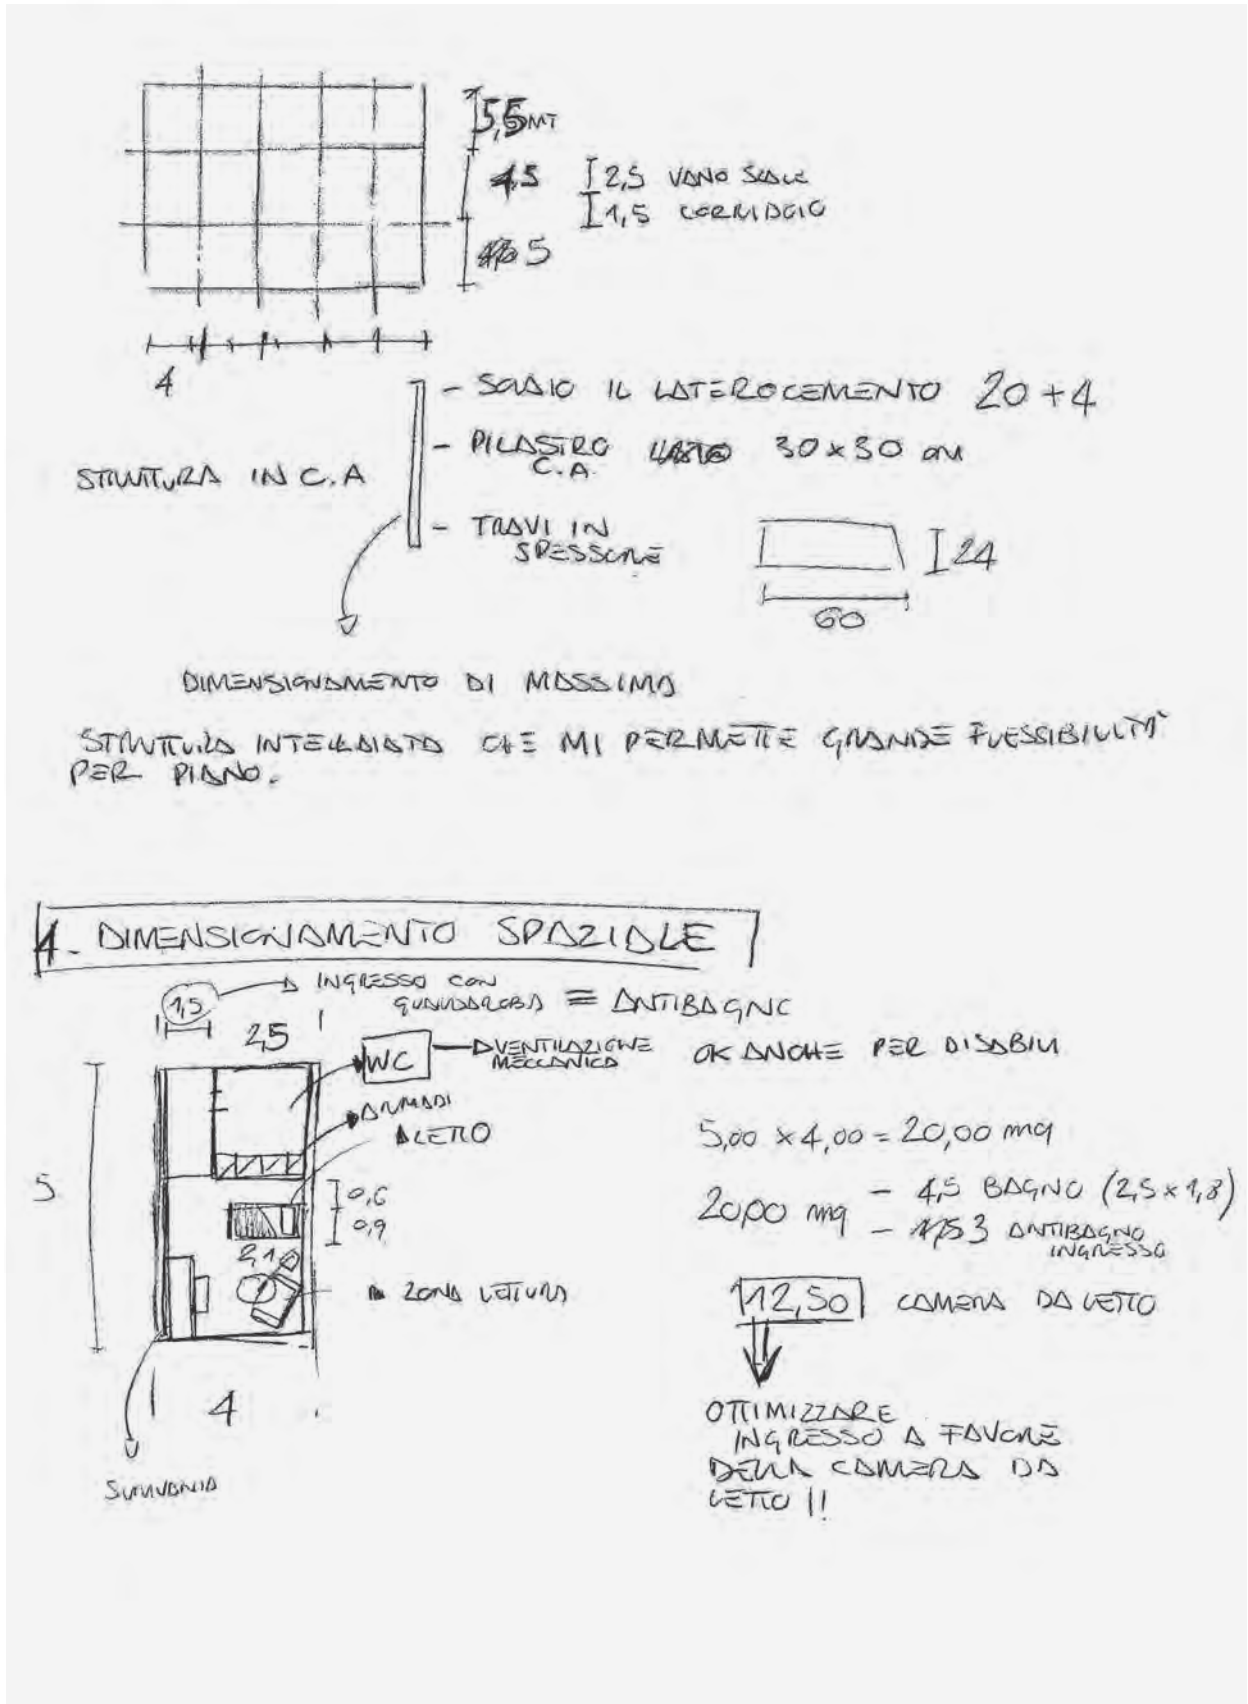 5,5 MT
4,5
2,5 VANO SCALE
1,5 CORRIDOIO
5
4
- SOLAIO IL LATEROCEMENTO 20+4
- PILASTRO 30x30 cm
C.A.
STRUTTURA IN C.A
- TRAVI IN
SPESSORE
24
60
DIMENSIONAMENTO DI MASSIMA
STRUTTURA INTELAIATA CHE MI PERMETTE GRANDE FLESSIBILITÀ
PER PIANO.
4. DIMENSIONAMENTO SPAZIALE
1,5
INGRESSO CON
GUARDAROBA = ANTIBAGNO
2,5
WC
VENTILAZIONE
MECCANICA
OK ANCHE PER DISABILI
ARMADI
LETTO
5,00 x 4,00 = 20,00 mq
5
0,6
0,9
20,00 mq
- 4,5 BAGNO (2,5 x 1,8)
- 3 ANTIBAGNO
INGRESSO
2,10
ZONA LETTURA
12,50 CAMERA DA LETTO
4
OTTIMIZZARE
INGRESSO A FAVORE
DELLA CAMERA DA
LETTO !!